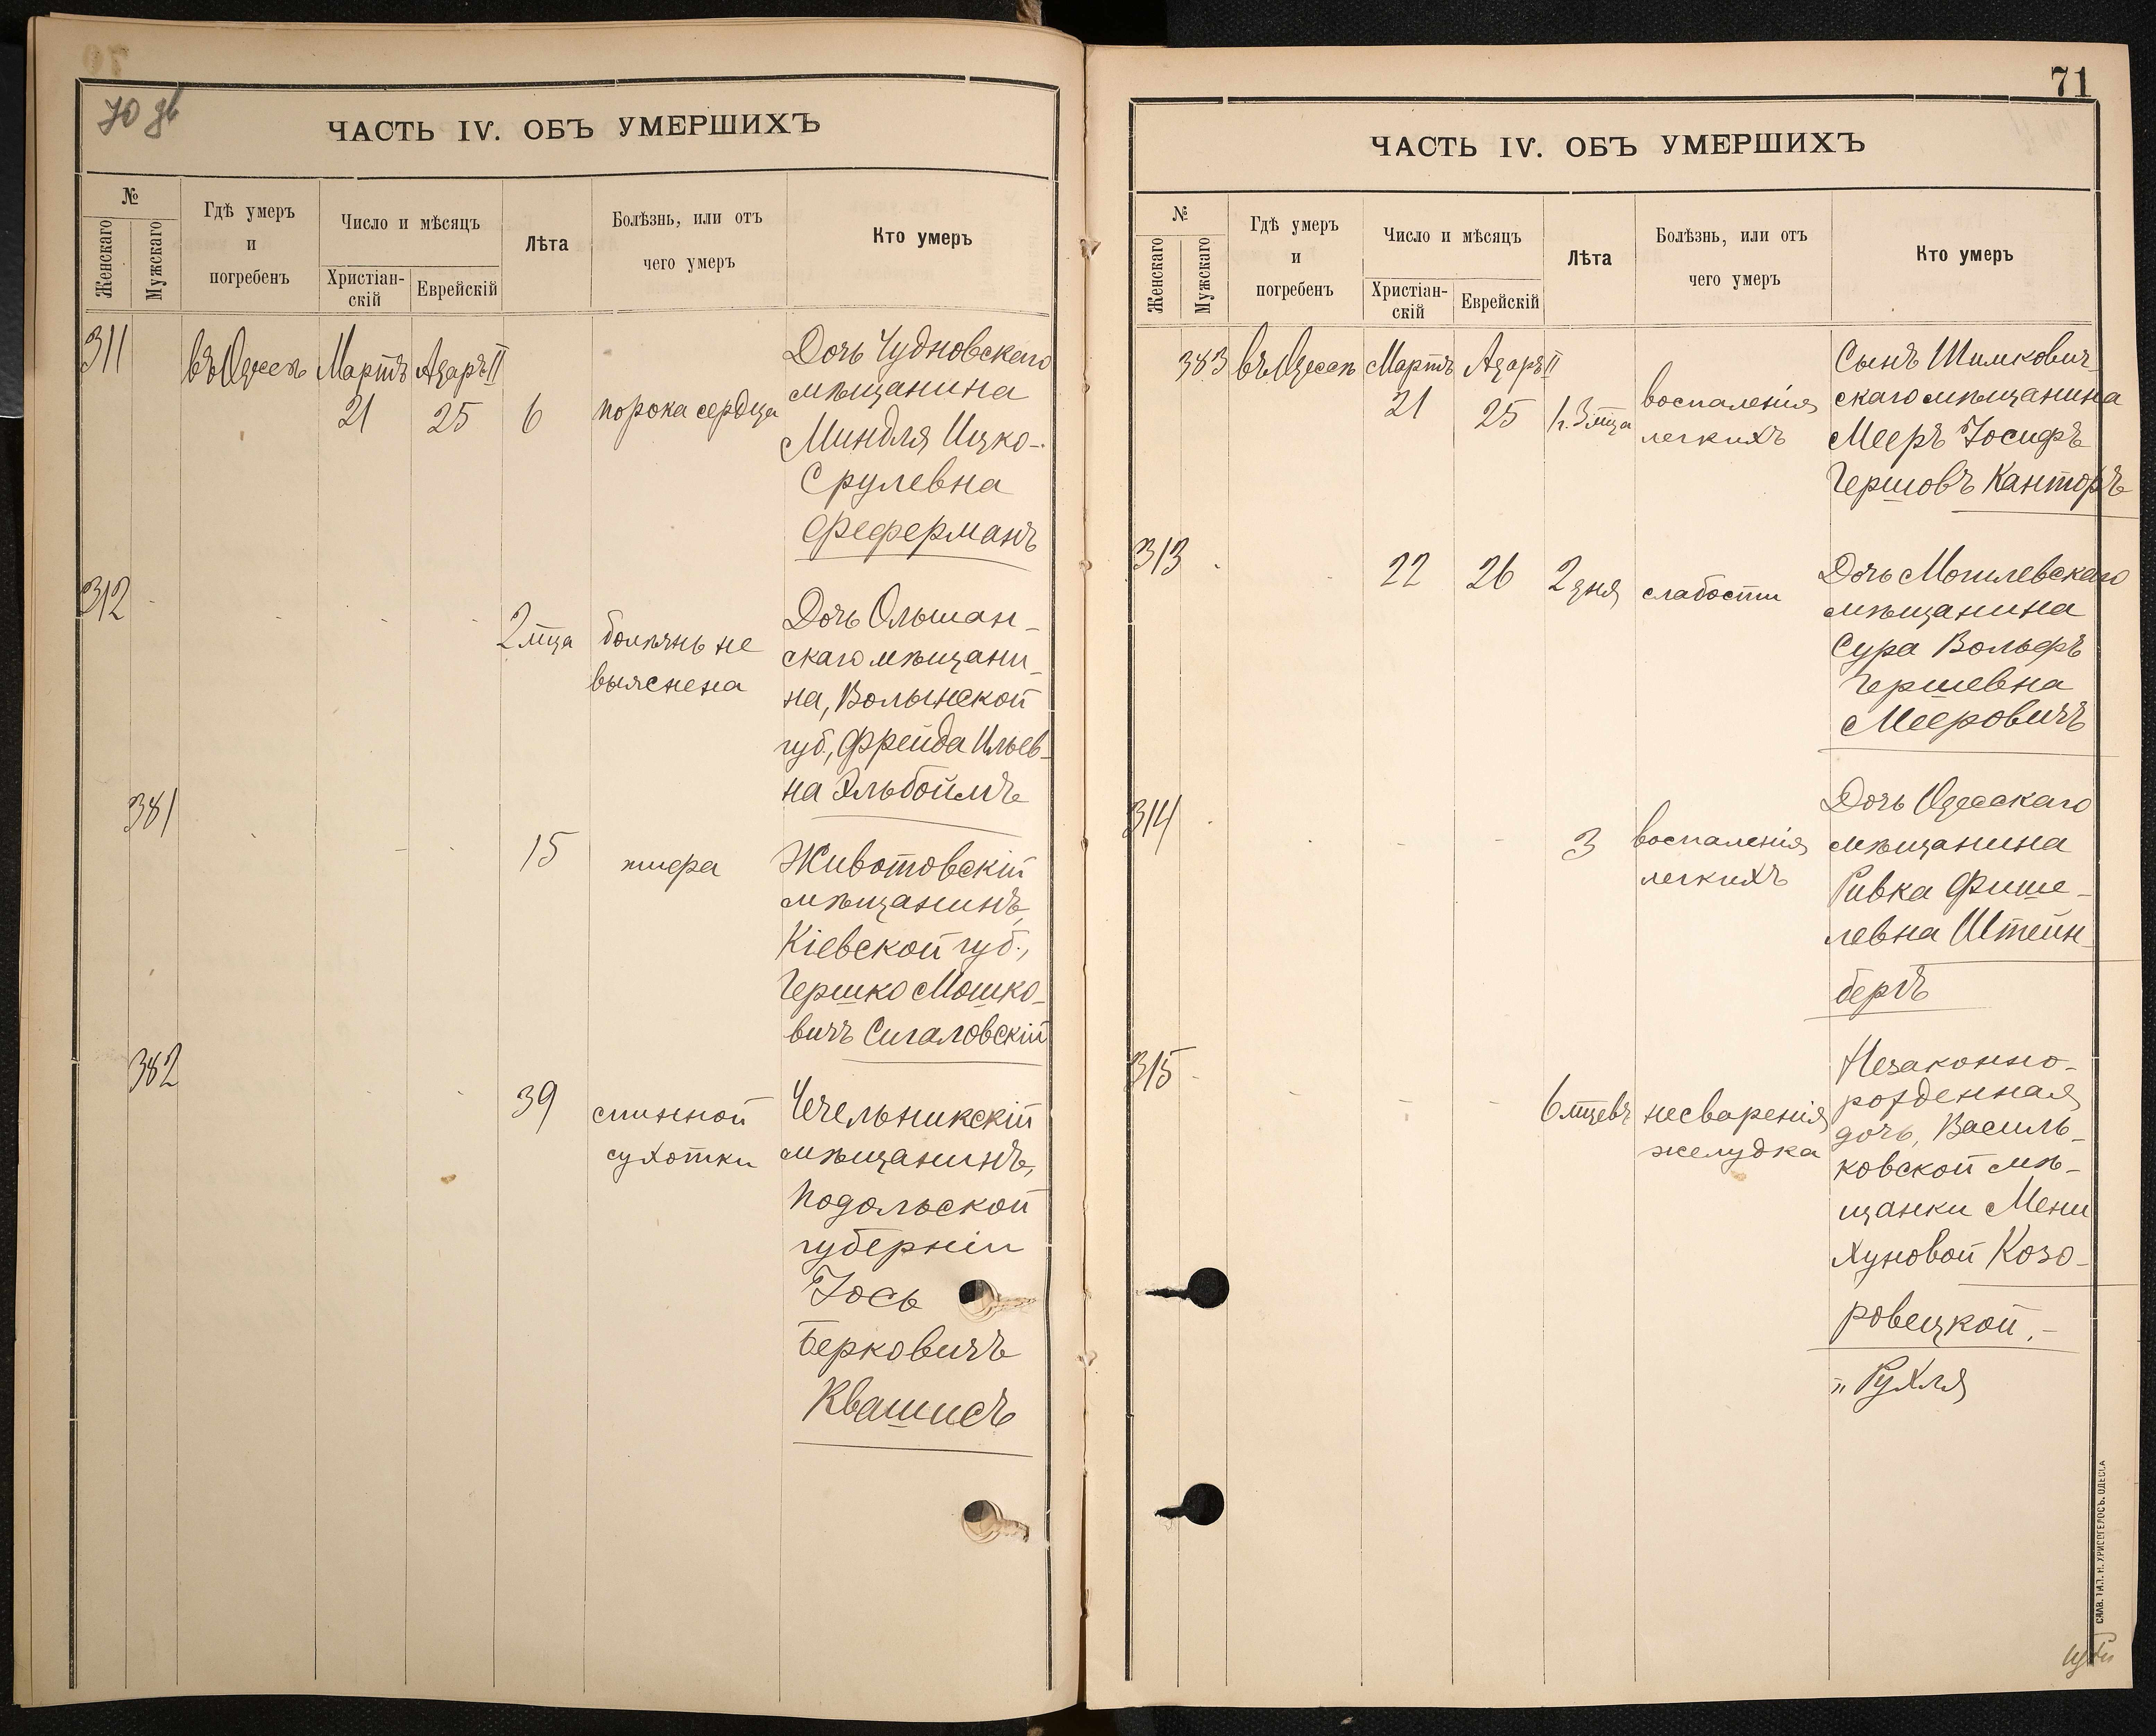 70 
ЧАСТЬ IV. ОБЪ УМЕРШИХЪ
№
Женскаго
Мужскаго
Гдѣ умеръ
и
погребенъ
Число и мѣсяцъ
Христіан-
скій
Еврейскій
Лѣта
Болѣзнь, или отъ
чего умеръ
Кто умеръ
311
въ Одессѣ
Мартъ
21
Адаръ II
25
6
порока сердца
Дочь Чудновскаго
мѣщанина
Миндля Ицко-
Срулевна
Феферманъ
312
2 мѣца
болѣзнь не
выяснена
Дочь Ольшан-
скаго мѣщани-
на, Волынской
губ., Фрейда Ильев-
на Эльбоймъ
381
15
тифа
Животовскій
мѣщанинъ,
Кіевской губ.,
Гершко Мошко-
вичъ Сигаловскій
382
39
спинной
сухотки
Чечельникскій
мѣщанинъ,
Подольской
губерніи
Іось
Берковичъ
Квашисъ
71
ЧАСТЬ IV. ОБЪ УМЕРШИХЪ
№
Женскаго
Мужскаго
Гдѣ умеръ
и
погребенъ
Число и мѣсяцъ
Христіан-
скій
Еврейскій
Лѣта
Болѣзнь, или отъ
чего умеръ
Кто умеръ
383
въ Одессѣ
Мартъ
21
Адаръ II
25
1 г. 3 мѣца
воспаленія
легкихъ
Сынъ Шимкович-
скаго мѣщанина
Мееръ Іосифъ
Гершовъ Канторъ
313
22
26
2 дня
слабости
Дочь Могилевскаго
мѣщанина
Сура Вольфъ
Гершевна
Мееровичъ
314
3
воспаленія
легкихъ
Дочь Одесскаго
мѣщанина
Ривка Фише-
левна Штейн-
бергъ
315
6 мѣцевъ
несваренія
желудка
Незаконно-
рожденная
дочь, Василь-
ковской мѣ-
щанки Мени
Хуновой Козо-
ровецкой.-
" Рухля
СЛАВ. ТИП. Н. ХРИСОГЕЛОСЪ. ОДЕССА